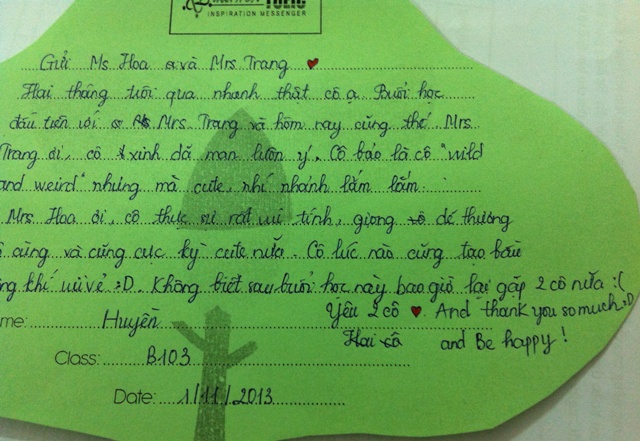 TOEIC
INSPIRATION MESSENGER
Gửi Ms Hoa và Mrs Trang ♥
Hai tháng trôi qua nhanh thật cô ạ. Buổi học
đầu tiên với Mrs. Trang và hôm nay cũng thế. Mrs
Trang ơi, cô xinh dã man luôn ý. Cô bảo là cô "wild
and weird" nhưng mà cute, nhí nhảnh lắm lắm.
Mrs Hoa ơi, cô thực sự rất vui tính, giọng dễ thương
cùng và cũng cực kỳ cute nữa. Cô lúc nào cũng tạo bầu
khí vui vẻ :D. Không biết sau buổi học này bao giờ lại gặp 2 cô nữa :(
Yêu 2 cô ♥. And thank you so much :D
me: Huyền
Hai cô and Be happy!
Class: B103
Date: 1/11/2013